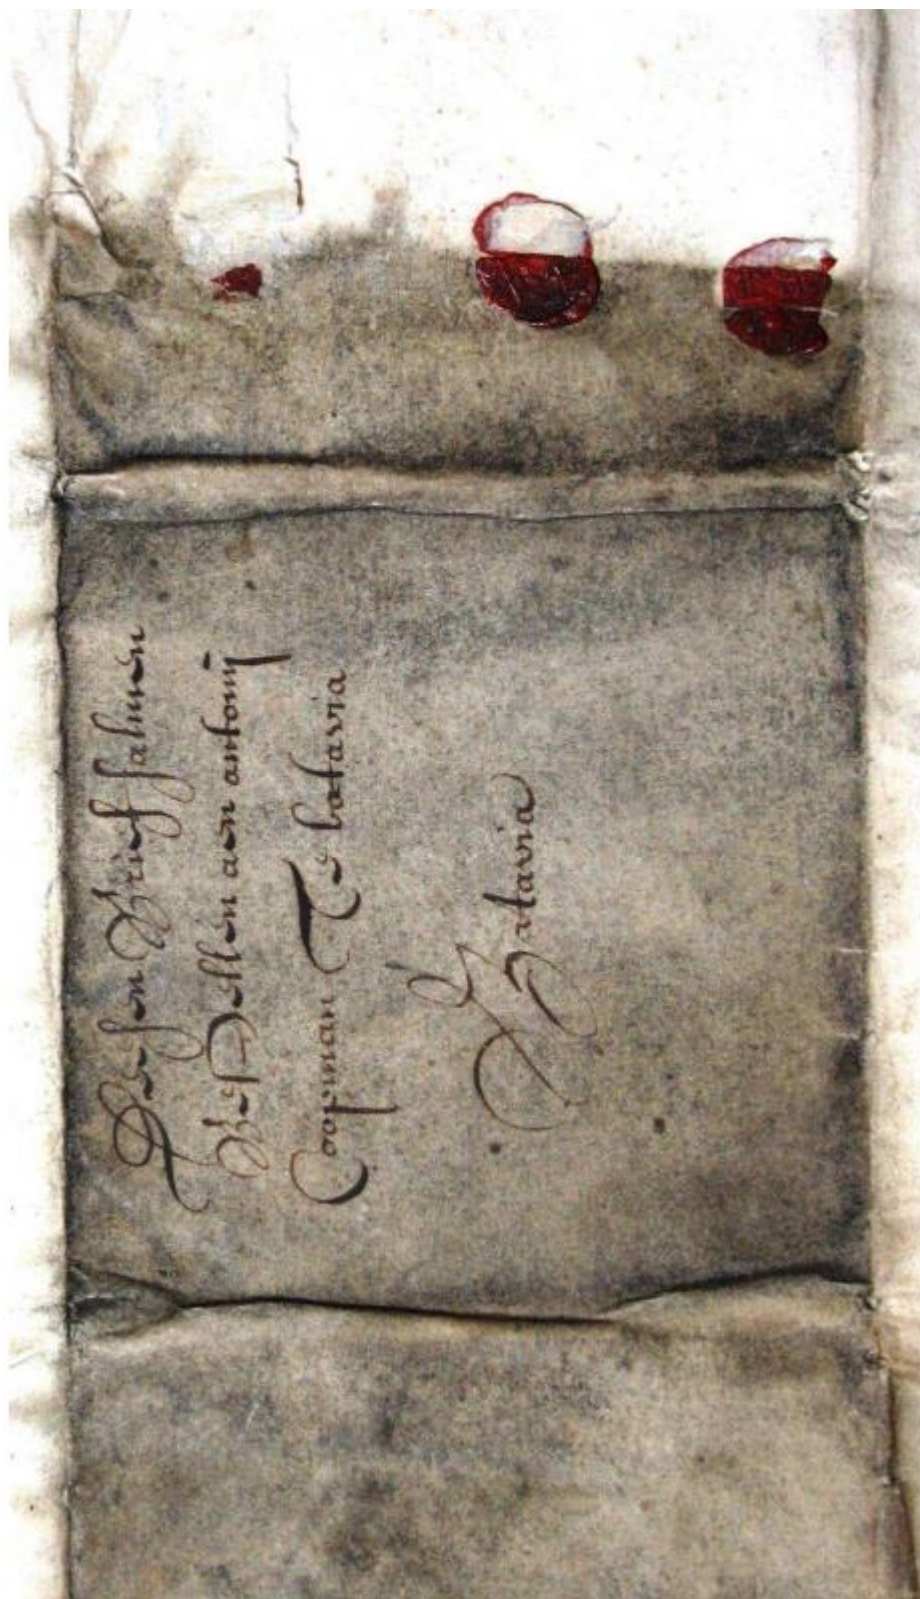 Desen Brief salmen
Bestellen aen antonij
Coopman Te batavia
Batavia